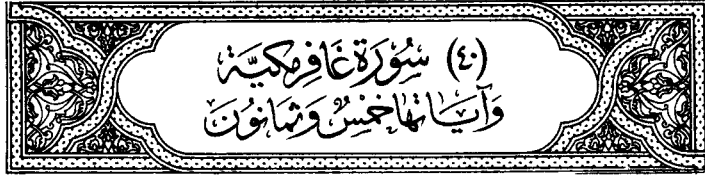 (٤٠) سُوْرَةُ غَافِرٍ مَكِيَّةٌ
وَآيَاتُهَا خَمْسٌ وَثَمَانُونَ